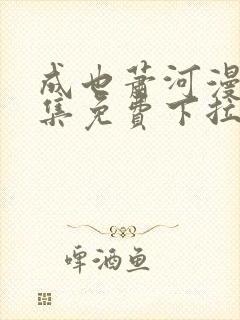 成也萧河漫
集免費下拉
啤酒鱼